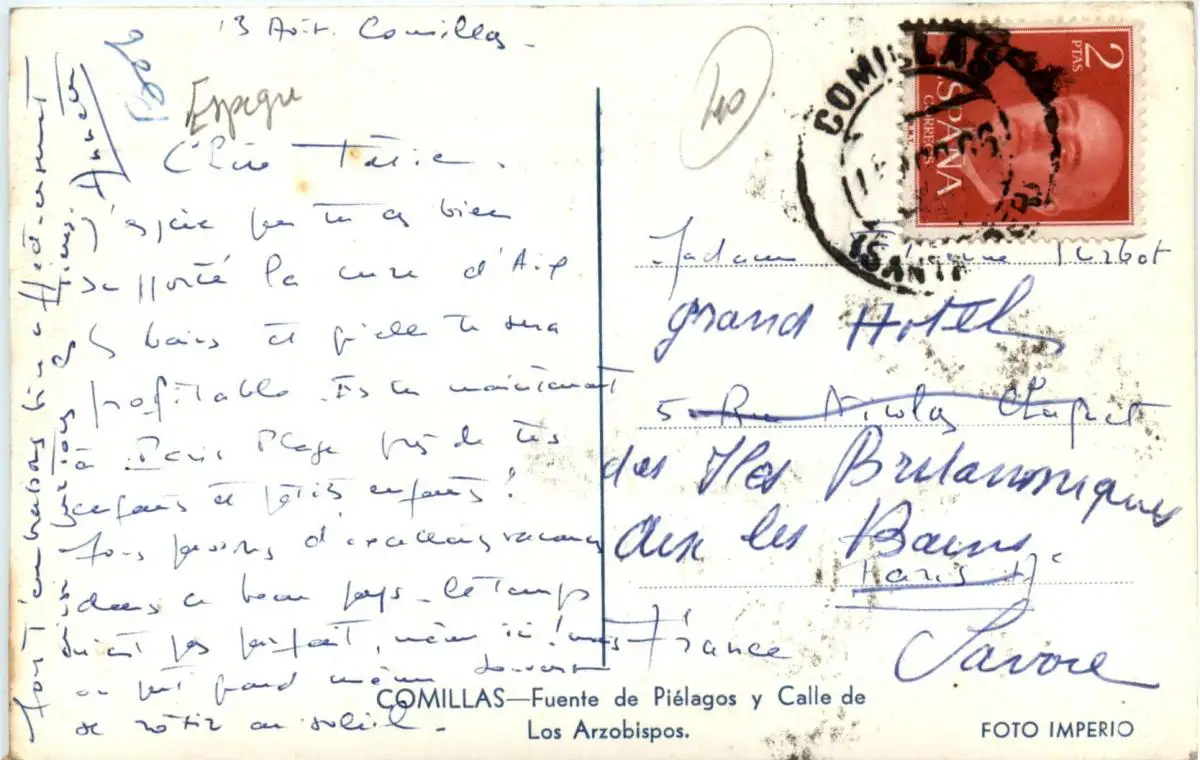 13 Août. Comillas.
Espagne
Chère Tatie.
J'espère que tu as bien
supporté la cure d'Aix
les bains et qu'elle te sera
profitable. Es tu maintenant
à Paris Plage près de tes
enfants et petits enfants?
Nous passons d'excellentes vacances
dans ce beau pays. Le temps
n'est pas parfait, même ici! mais
on peut quand même souvent
se rôtir au soleil.
Nous t'embrassons bien affectueusement
Annette
40
COMILLAS
(SANTA
2
PTAS
ESPAÑA
CORREOS
Madame
Grand Hotel
5 Rue Nicolas Chuquet
des Iles Britanniques
Aix les Bains.
Paris 17
France
Savoie
COMILLAS—Fuente de Piélagos y Calle de
Los Arzobispos.
FOTO IMPERIO